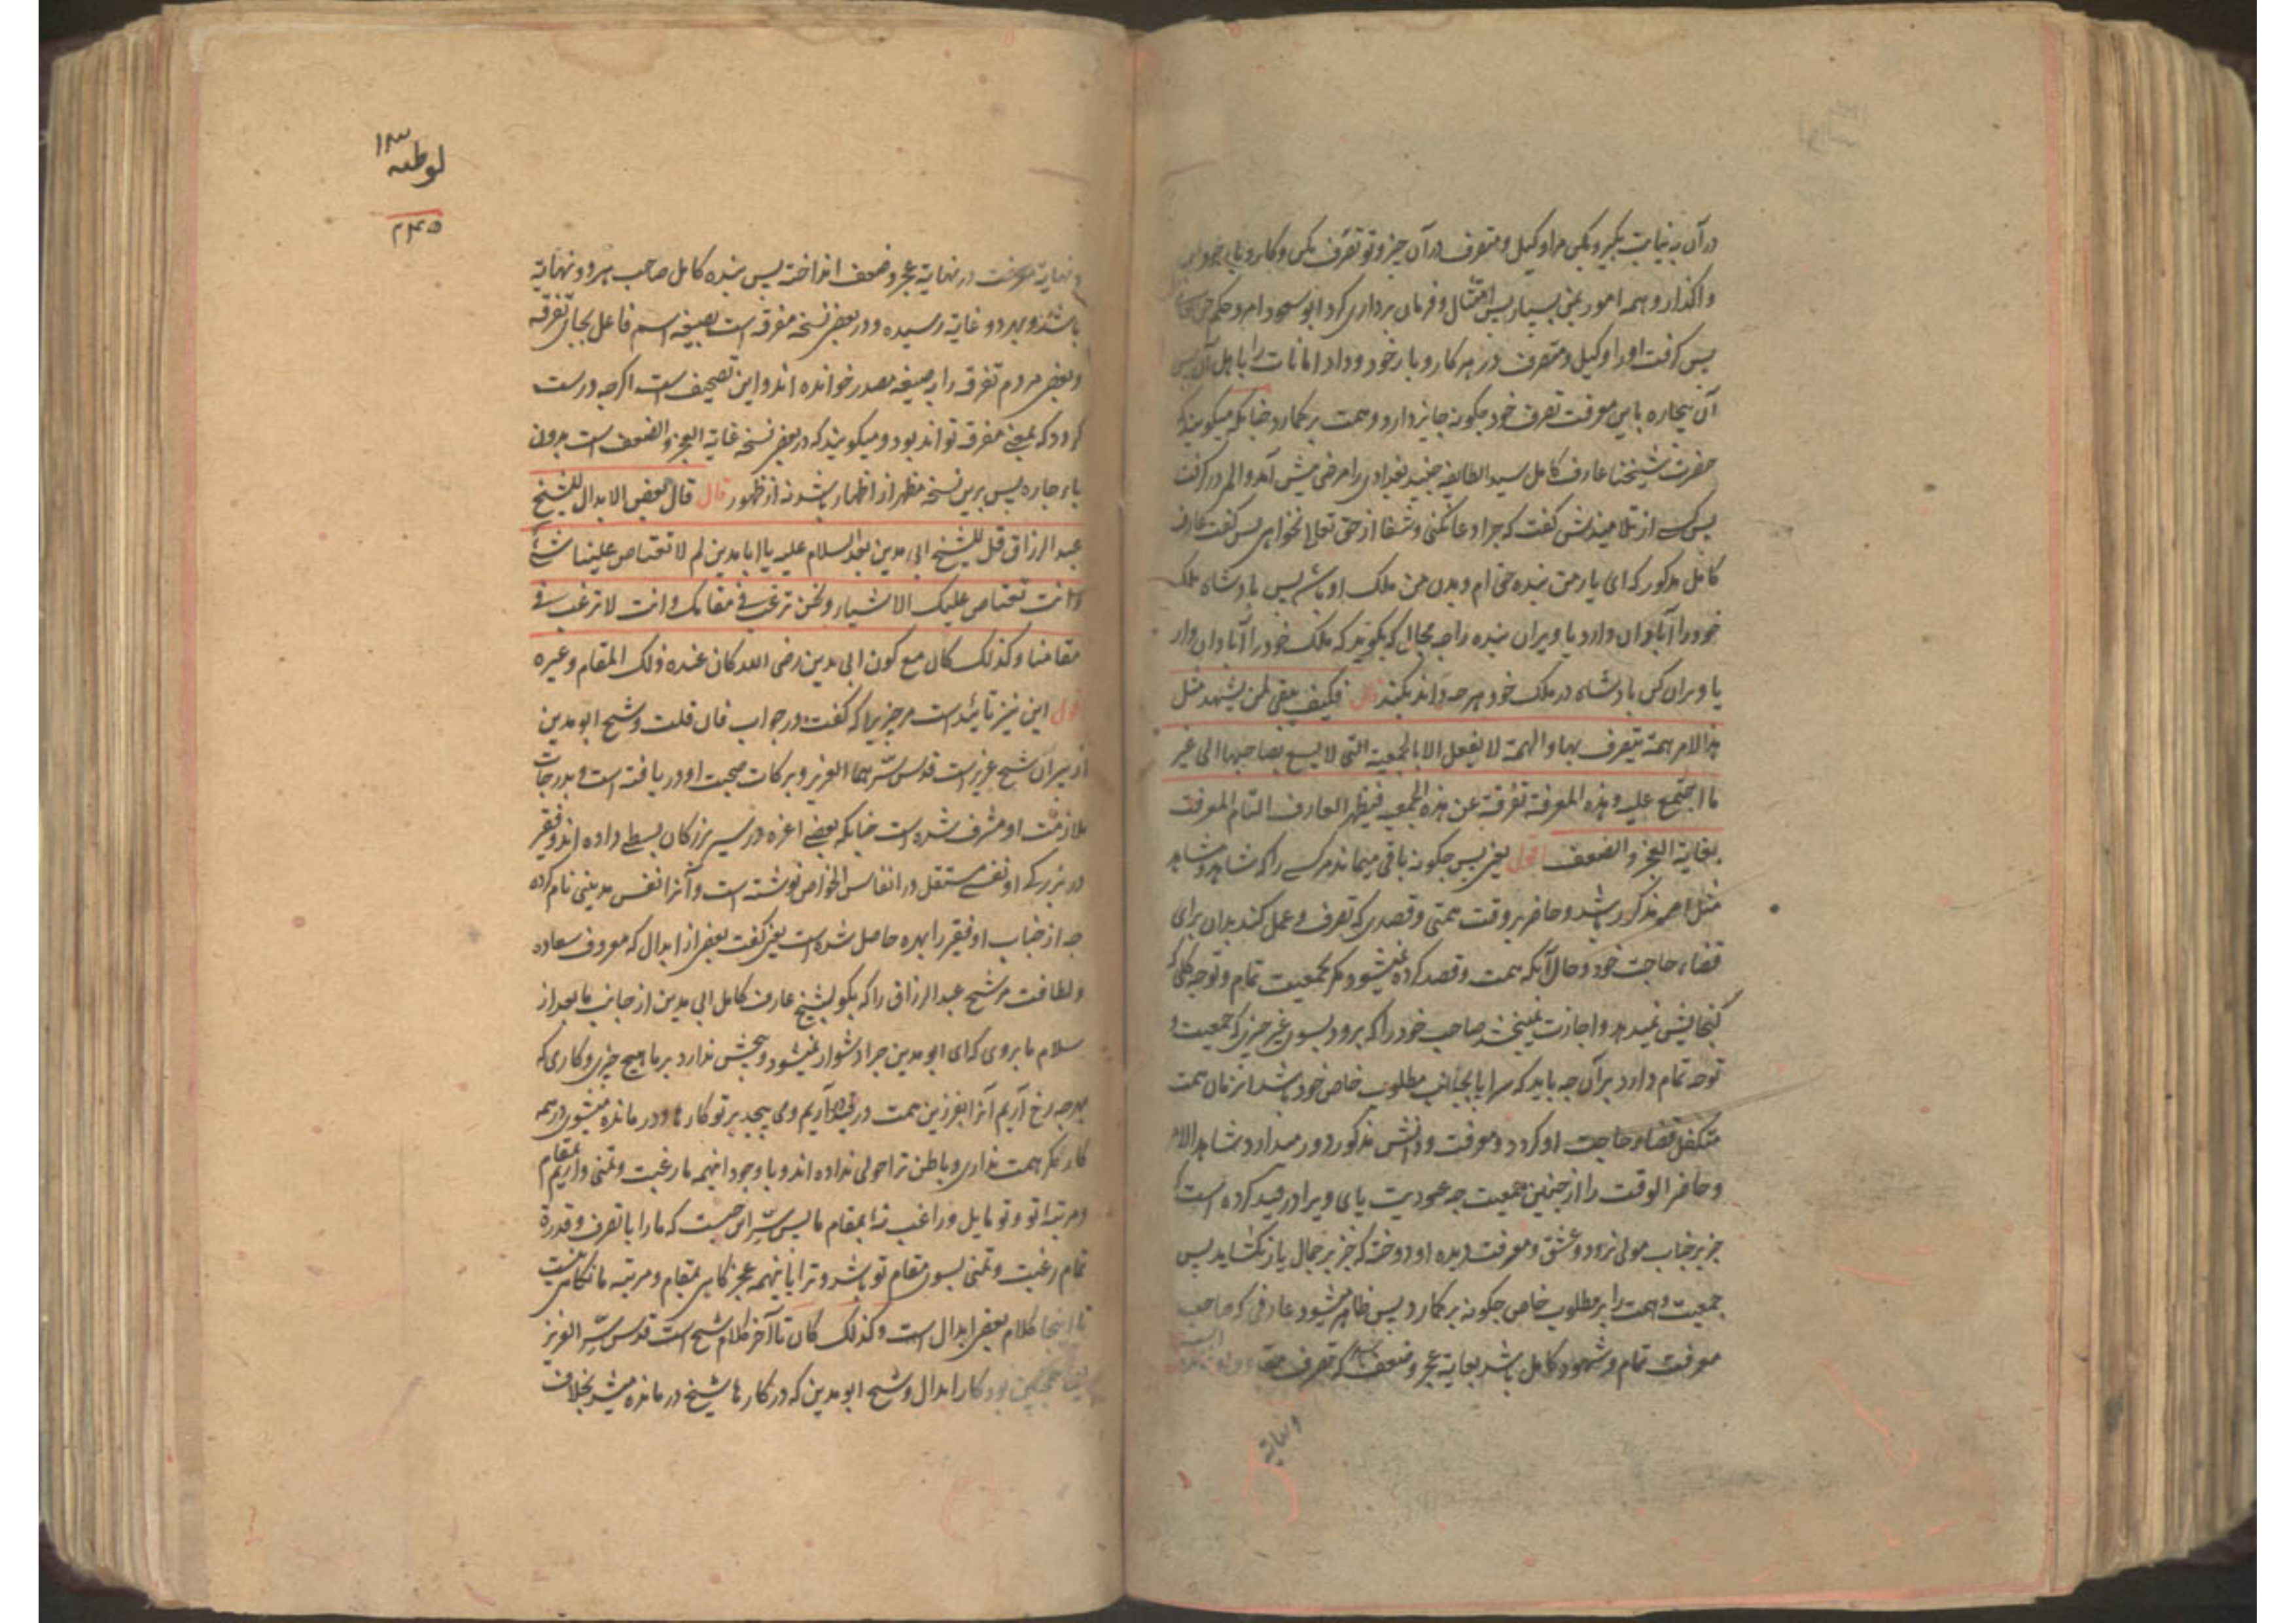 در آن به نیابت بگیر و بکن مرا وکیل و متصرف در آن چیز و تو تصرف مکن و کار و بار خود بمن
واگذار و همه امور بمن بسپار پس امتثال و فرمان برداری کرد ابو سعود امر و حکم حق
پس گرفت او را وکیل و متصرف در هر کار و بار خود و داد امانات را باهل آن پس
آن بیچاره باین معرفت تصرف خود چگونه جایز دارد و همت بر گمارد چنانکه میگویند که
حضرت شیخنا عارف کامل سید الطایفه جنید بغدادی را مرضی پیش آمد و الم در گرفت
پس یکی از تلامیذش گفت که چرا دعا نکنی و شفا از حق تعالی نخواهی پس گفت عارف
کامل مذکور که ای یار من بنده حق ام و بدن من ملک او باشد پس بادشاه ملک
خود را آبادان دارد یا ویران بنده را چه مجال که بگوید که ملک خود را آبادان دار
یا ویران کن بادشاه در ملک خود هر چه داند بکند قال فکیف یبقی لمن یشهد مثل
هذا الامر همة یتصرف بها و الهمة لا یفعل الا بالجمعیة التی لا یسع لصاحبها الی غیر
ما اجتمع علیه و هذه المعرفة تفرقة عن هذه الجمعیة فیظهر العارف التام المعرفت
بغایة العجز و الضعف اقول یعنی پس چگونه باقی میماند مر کسی را که شاهد و مشاهد
مثل امر مذکور باشد و حاضر بر وقت همتی و قصدی که تصرف و عمل کند بدان برای
قضاء حاجت خود و حال آنکه همت و قصد کرده نمیشود مگر بجمعیت تمام و توجه کلی که
گنجایش نمیدهد و اجازت نمیبخشد صاحب خود را که برود بسوی غیر چیزی که جمعیت و
توجه تمام دارد بر آن چه باید که سراپا بجانب مطلوب خاص خود باشد آنزمان همت
متکفل قضاء حاجت او گردد و معرفت و دانش مذکور دور میدارد شاهد الامر
و حاضر الوقت را از چنین جمعیت چه عبودیت پای ویرا در قید کرده است که
جز بر جناب مولی نرود و عشق و معرفت دیده او دوخته که جز بر جمال یار نگشاید پس
جمعیت و همت را بر مطلوب خاص چگونه بر گمارد پس ظاهر میشود عارفی که صاحب
معرفت تمام و شهود کامل باشد بغایة عجز و ضعف که تصرف
۱۸۳
لوطیه
۲۴۵
و نهایة معرفت در نهایة عجز و ضعف انداخته پس بنده کامل صاحب هر دو نهایة
باشد و بهر دو غایة رسیده و در بعضی نسخه مفرقه است بصیغه اسم فاعل بجای تفرقه
و بعضی مردم تفرقه را بصیغه مصدر خوانده اند و این تصحیف است اگرچه درست
گردد که بمعنی مفرقه تواند بود و میگویند که در بعضی نسخه غایة العجز و الضعف است بدون
با بر جاره پس برین نسخه مظهر از اظهار باشد نه از ظهور قال قال بعض الابدال للشیخ
عبد الرزاق قل للشیخ ابی مدین بعد السلام علیه یا ابا مدین لم لا تعتاص علینا شیٔ
و انت تعتاص علیک الاشیاء و نحن نرغب فی مقامک و انت لا ترغب فی
مقامنا و کذلک کان مع کون ابی مدین رضی الله کان عنده ذلک المقام و غیره
اقول این نیز تائید است مر چیزیرا که گفت در جواب فان قلت و شیخ ابو مدین
از پیران شیخ عزیز است قدس سرهما العزیز و برکات صحبت او دریافته است و بدرجات
ملازمت او مشرف شده است چنانکه بعضی اعزه در سیر بزرگان بسطی داده اند و فقیر
در بزرگی او نفسی مستقل در انفاس الخواص نوشته است و آنرا نفس مدینی نام کرده
چه از جناب او فقیر را بهره حاصل شده است یعنی گفت بعض از ابدال که معروف سعاده
و لطافت مر شیخ عبد الرزاق را که بگو بشیخ عارف کامل ابی مدین از جانب ما بعد از
سلام ما بروی که ای ابو مدین چرا دشوار نمیشود و پیچش ندارد بر ما هیچ چیزی و کاری که
بهر چه رخ آریم آنرا بفرزین همت در قید آریم و می پیچد بر تو کارها و در مانده میشوی در همه
کار مگر همت نداری و باطن ترا حولی نداده اند و با وجود اینهمه ما رغبت و تمنی داریم بمقام
و مرتبه تو و تو مایل و راغب نه بمقام ما پس سر این چیست که ما را با تصرف و قدرة
تمام رغبت و تمنی بسوی مقام تو باشد و ترا با اینهمه عجز گاهی بمقام و مرتبه ما نگاهی نیست
تا اینجا کلام بعض ابدال است و کذلک کان تا آخر کلام شیخ است قدس سره العزیز
یعنی همچنین بود کار ابدال و شیخ ابو مدین که در کارها شیخ در مانده میشد بخلاف